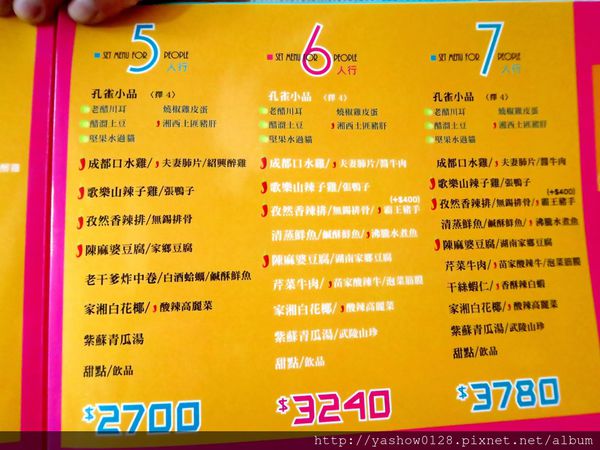 5
SET MENU FOR PEOPLE
人行
孔雀小品 （擇 4）
老醋川耳 燒椒雞皮蛋
醋溜土豆 湘西土匪豬肝
堅果水過貓
成都口水雞/夫妻肺片/紹興醉雞
歌樂山辣子雞/張鴨子
孜然香辣排/無錫排骨
陳麻婆豆腐/家鄉豆腐
老干爹炸中卷/白酒蛤蠣/鹹酥鮮魚
家湘白花椰/酸辣高麗菜
紫蘇青瓜湯
甜點/飲品
$2700
6
SET MENU FOR PEOPLE
人行
孔雀小品 （擇 4）
老醋川耳 燒椒雞皮蛋
醋溜土豆 湘西土匪豬肝
堅果水過貓
成都口水雞/夫妻肺片/醬牛肉
歌樂山辣子雞/張鴨子
(+$400)
孜然香辣排/無錫排骨/霸王豬手
清蒸鮮魚/鹹酥鮮魚/沸騰水煮魚
陳麻婆豆腐/湖南家鄉豆腐
芹菜牛肉/苗家酸辣牛/泡菜筋膜
家湘白花椰/酸辣高麗菜
紫蘇青瓜湯/武陵山珍
甜點/飲品
$3240
7
SET MENU FOR PEOPLE
人行
孔雀小品 （擇 4）
老醋川耳 燒椒雞皮蛋
醋溜土豆 湘西土匪豬肝
堅果水過貓
成都口水雞/夫妻肺片/醬牛肉
歌樂山辣子雞/張鴨子
(+$400)
孜然香辣排/無錫排骨/霸王豬手
清蒸鮮魚/鹹酥鮮魚/沸騰水煮魚
陳麻婆豆腐/湖南家鄉豆腐
芹菜牛肉/苗家酸辣牛/泡菜筋膜
干絲蝦仁/香酥辣白蝦
家湘白花椰/酸辣高麗菜
紫蘇青瓜湯/武陵山珍
甜點/飲品
$3780
http://yashow0128.pixnet.net/album